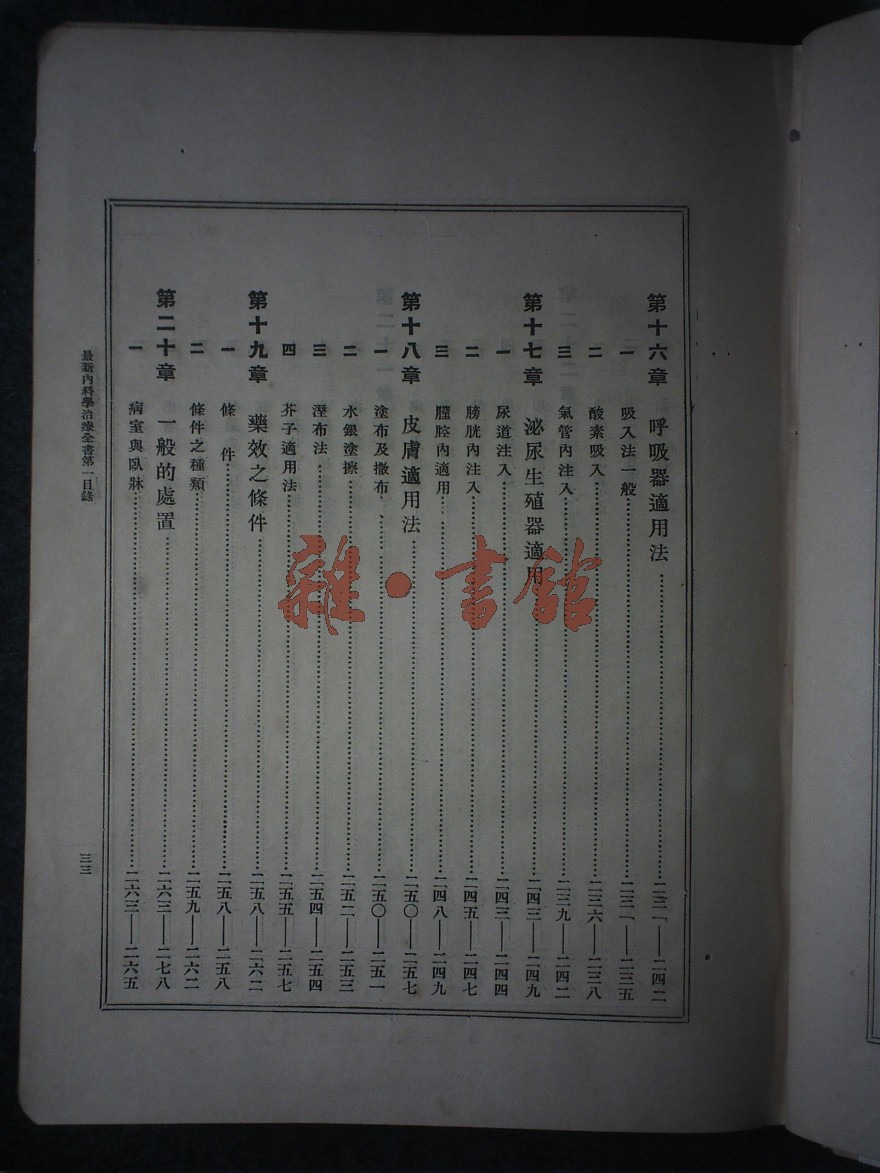 第十六章 呼吸器適用法 二三一——二四二
一 吸入法一般 二三一——二三五
二 酸素吸入 二三六——二三八
三 氣管內注入 二三九——二四二
第十七章 泌尿生殖器適用 二四三——二四九
一 尿道注入 二四三——二四四
二 膀胱內注入 二四五——二四七
三 膣腔內適用 二四八——二四九
第十八章 皮膚適用法 二五〇——二五七
一 塗布及撒布 二五〇——二五一
二 水銀塗擦 二五二——二五三
三 溼布法 二五四——二五四
四 芥子適用法 二五五——二五七
第十九章 藥效之條件 二五八——二六二
一 條件 二五八——二五八
二 條件之種類 二五九——二六二
第二十章 一般的處置 二六三——二七八
一 病室與臥牀 二六三——二六五
最新內科學治療全書第一目錄
三三
雜·書館